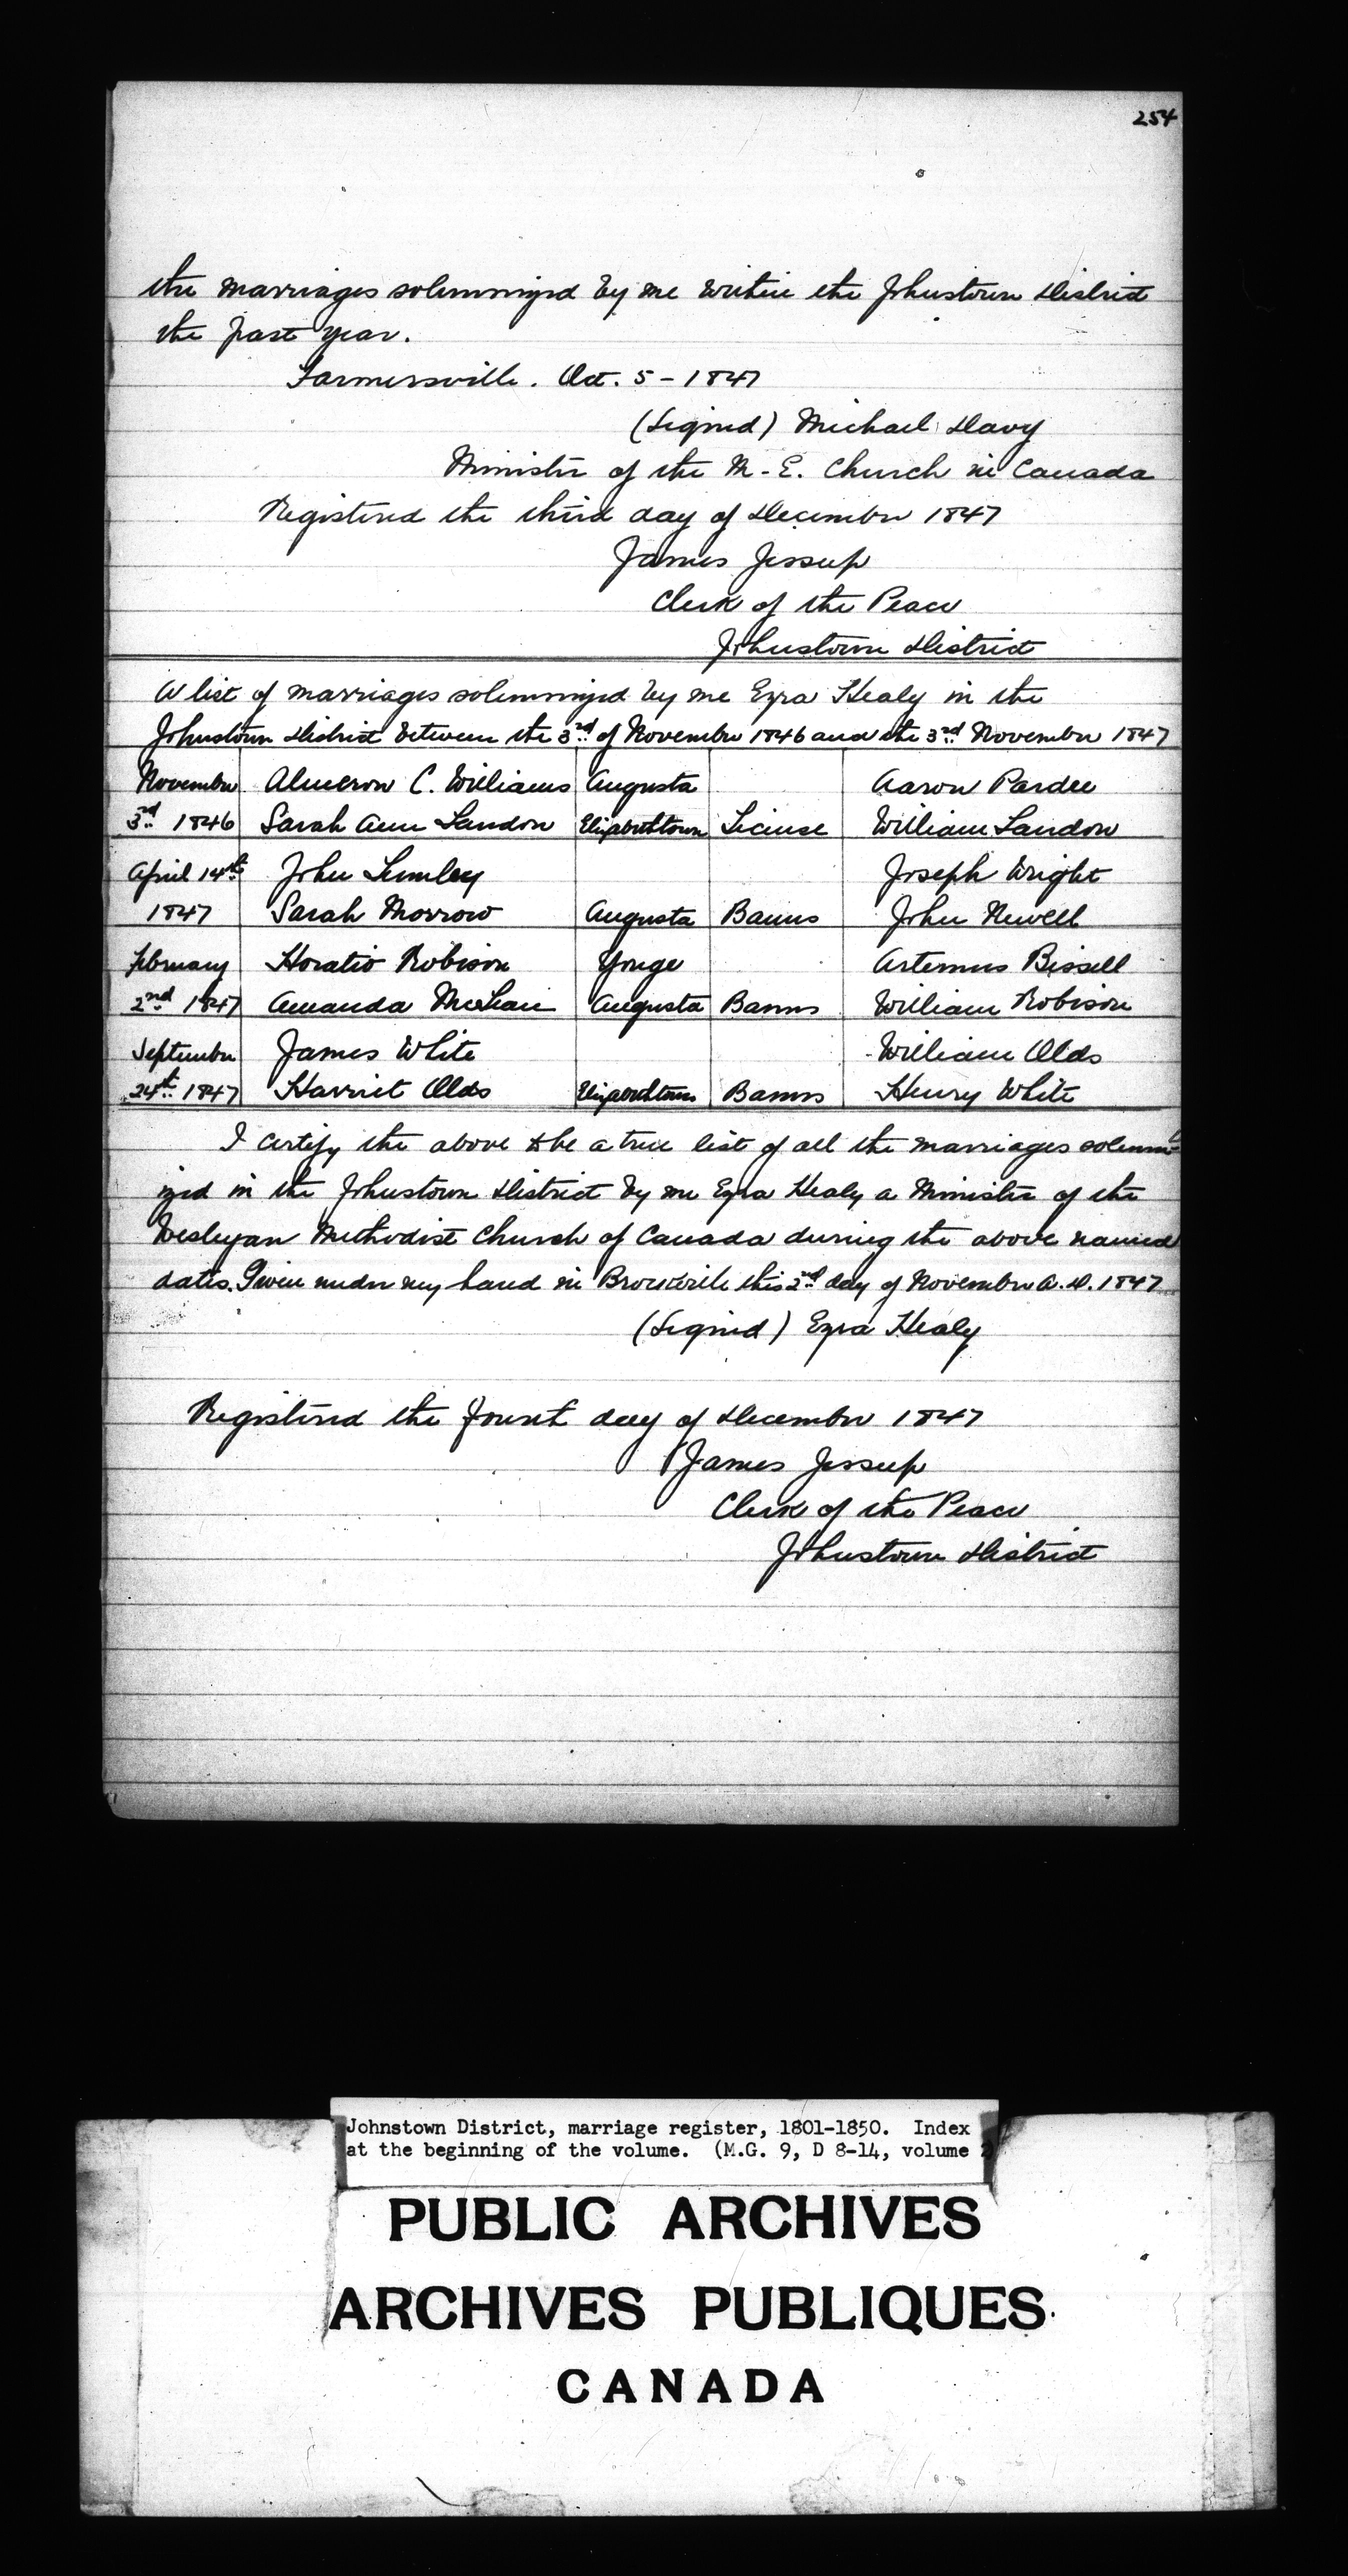 254
the marriages solemnized by me within the Johnstown District
the past year.
Farmersville. Oct. 5 - 1847
(Signed) Michael Davy
Minister of the M. E. Church in Canada
Registered the third day of December 1847
James Jessup
Clerk of the Peace
Johnstown District
A list of marriages solemnized by me Ezra Healy in the
Johnstown District between the 3rd of November 1846 and the 3rd November 1847
November Almeron C. Williams Augusta Aaron Pardee
3rd 1846 Sarah Ann Landon Elizabethtown License William Landon
April 14th John Lumley Joseph Wright
1847 Sarah Morrow Augusta Banns John Newell
February Horatio Robison Yonge Artemus Bissell
2nd 1847 Amanda McLean Augusta Banns William Robison
September James White William Olds
24th 1847 Harriet Olds Elizabethtown Banns Henry White
I certify the above to be a true list of all the marriages solemn-
ized in the Johnstown District by me Ezra Healy a Minister of the
Wesleyan Methodist Church of Canada during the above named
dates. Given under my hand in Brockville this 2nd day of November A.D. 1847
(Signed) Ezra Healy
Registered the fourth day of December 1847
James Jessup
Clerk of the Peace
Johnstown District
Johnstown District, marriage register, 1801-1850. Index
at the beginning of the volume. (M.G. 9, D 8-14, volume 2
PUBLIC ARCHIVES
ARCHIVES PUBLIQUES
CANADA